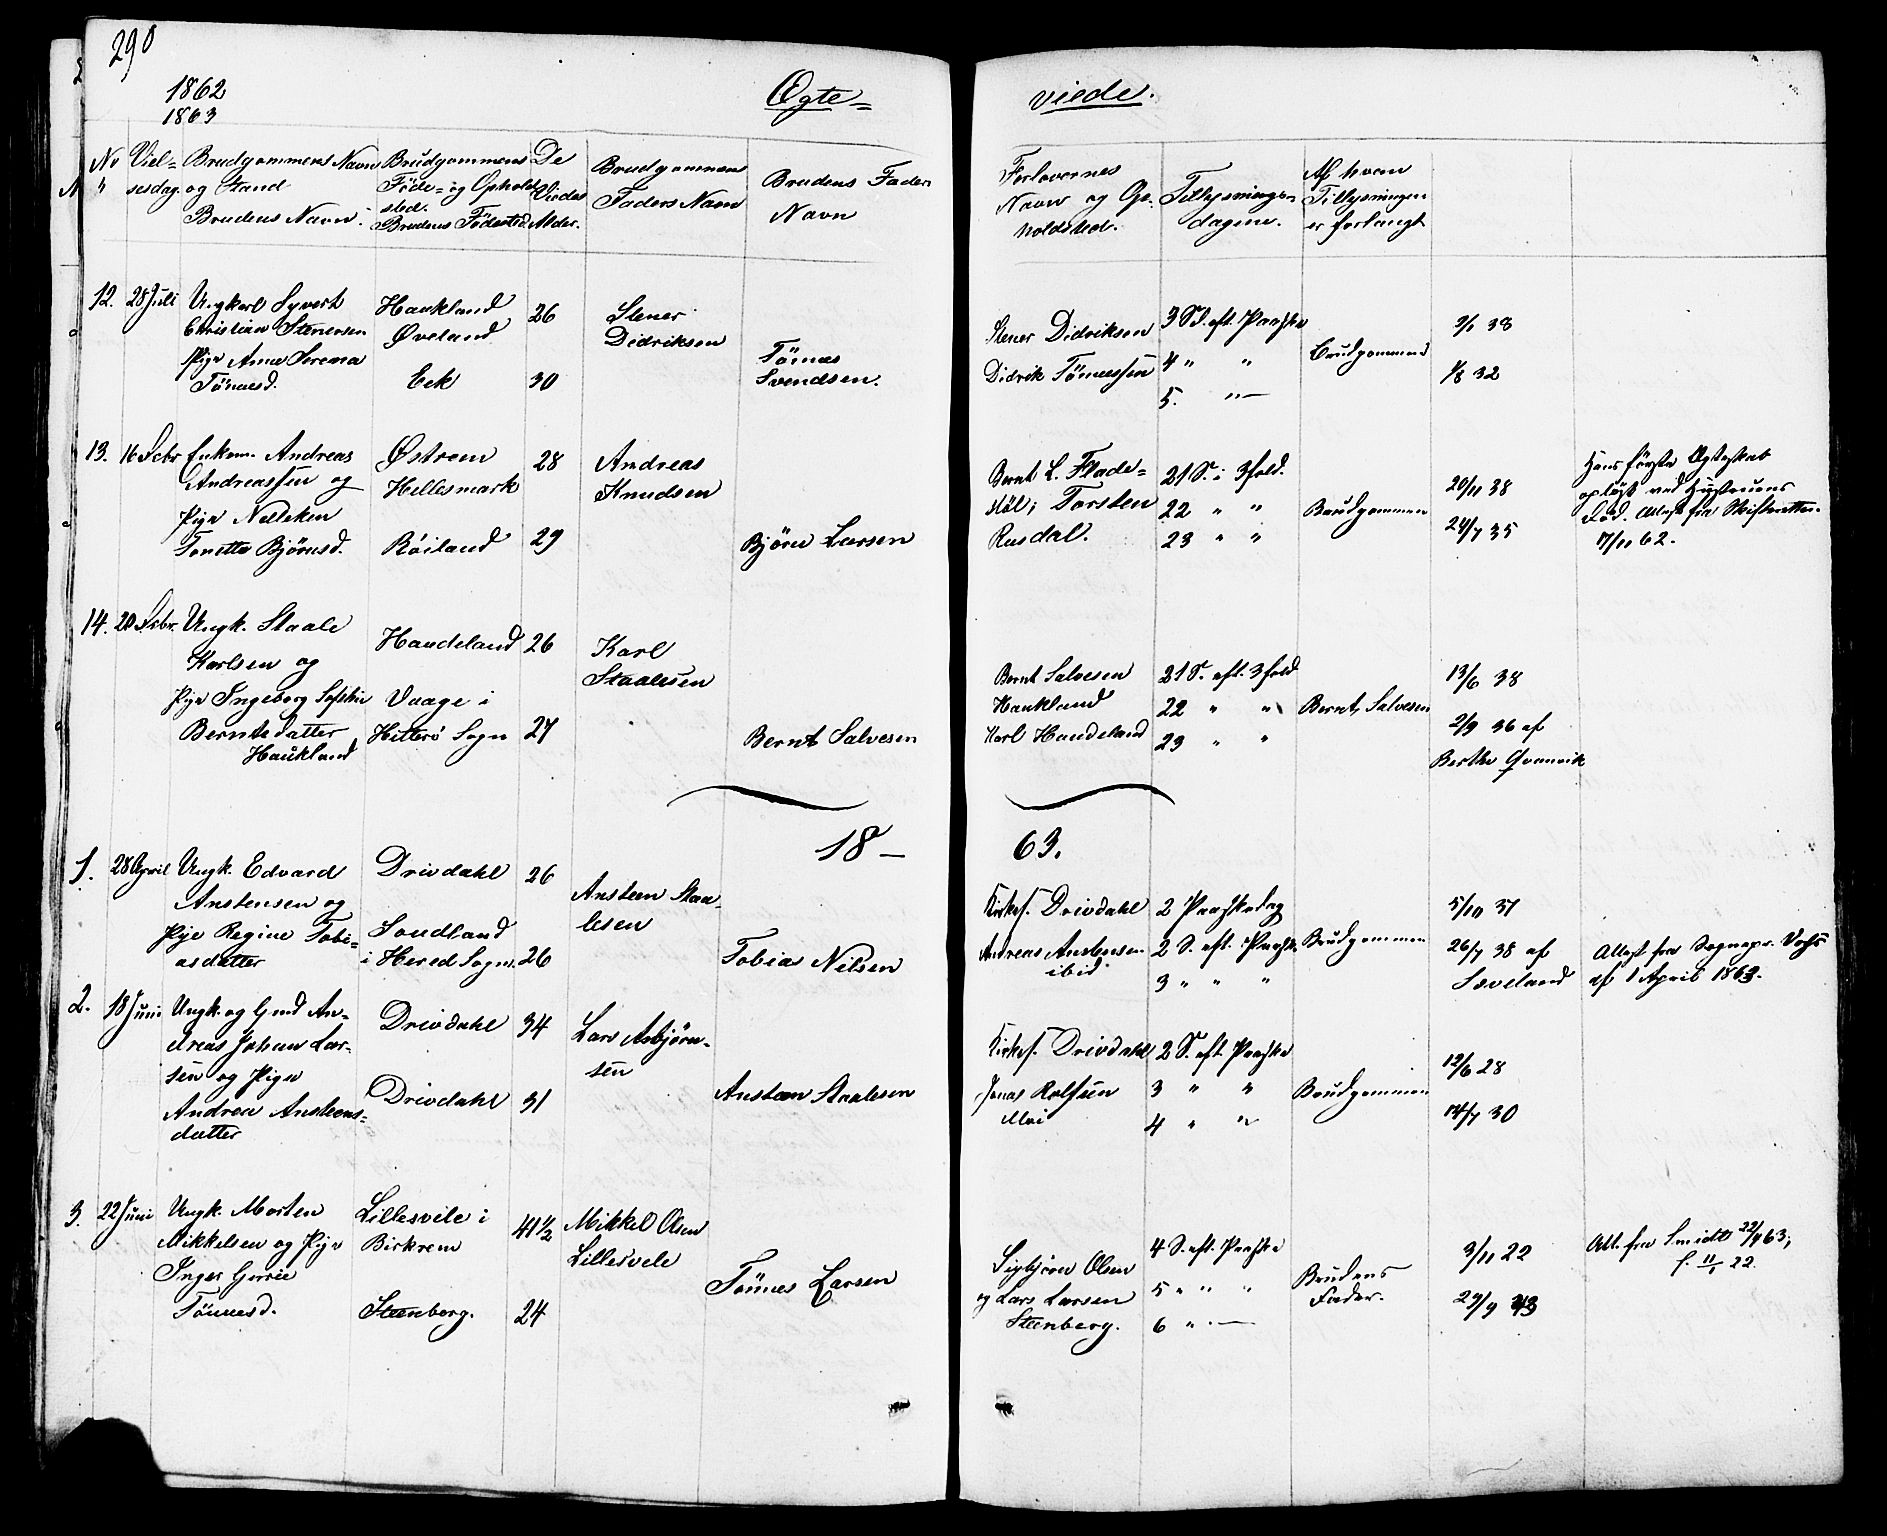 290
1862
1863
Ægte=
viede.
No
Viel=
sesdag.
Brudgommens Navn
og Stand
Brudens Navn.
Brudgommens
Føde= og Opholds
sted.
Brudens Fødested.
De
Viedes
Alder.
Brudgommens
Faders Navn
Brudens Fader
Navn
Forlovernes
Navn og Op:
holdsted.
Tillysnings
dagene.
Af hvem
Tillysningen
er forlangt
12. 28 Juli
Ungkarl Syvert
Christian Stenersen
Pige Anne Serena
Tönnesd.
Haukland
Øveland
Eek
26
30
Stener
Didriksen
Tönnes
Svendsen.
Stener Didriksen
Didrik Tönnessen
3 S. eft. Paaske
4 " "
5. "
Brudgommend
9/1 38
1/8 32
13. 16 Dcbr
Enkem. Andreas
Andreassen og
Pige Nelleken
Tonette Bjørnsd.
Østrem
Hellesmark
Röiland
28
29
Andreas
Knudsen
Bjørn Larsen
Bernt L. Flade=
stöl; Torsten
Rusdal.
21 S. i 3fold.
22 " "
23 " "
Brudgommen
20/11 38
24/7 35
Hans første Ægteskab
opløst ved Hustruens
Död. Attest fra Skifteretten
17/11 62.
14. 20 Dcbr.
Ungk. Staale
Karlsen og
Pige Ingeborg Sofstine
Berntsdatter
Haukland
Haudeland
Vaage i
Hitterö Sogn
26
27
Karl
Staalesen
Bernt Salvesen
Bernt Salvesen
Haukland
Karl Haudeland
21 S. eft. 3fold
22 " "
23 " "
Bernt Salvesen
13/6 38
2/9 36 af
Berthe Qvanvik
18 —
63.
1. 28 April
Ungk. Edvard
Anstensen og
Pige Regine Tobi=
asdatter
Drivdahl
Soudland
i Hered Sogn.
26
26
Ansteen Staa=
lesen
Tobias Nilsen
Kirkes. Drivdahl
Andreas Anstensen
ibid.
2 Paaskedag
2 S. eft. Paaske
3 " " "
Brudgommen
5/10 37
26/7 38 af
Sæveland
Attest fra Sognepr. Vogt
af 1 April 1863.
2. 18 Juni
Ungk. og Gmd An=
dreas Johan Lar=
sen og Pige
Andrea Ansteens=
datter
Drivdahl
Drivdahl
34
31
Lars Asbjörn=
sen
Ansteen Staalesen
Kirkes. Drivdahl
Jonas Rolfsen
Moi
2 S. eft Paaske
3 " "
4 " "
Brudgommen
12/6 28
14/7 30
3. 22 Juni
Ungk. Morten
Mikkelsen og Pige
Inger Gurie
Tönnesd.
Lillesvele i
Birkrem
Steenberg.
41 1/2
24
Mikkel Olsen
Lillesvele
Tönnes Larsen
Sigbjörn Olsen
og Lars Larsen
Steenberg.
4 S. eft. Paaske
5 " " "
6 "
Brudens
Fader.
3/11 22
29/9 43
Att. fra Smidt 22/4 63;
f. 11/1 22.